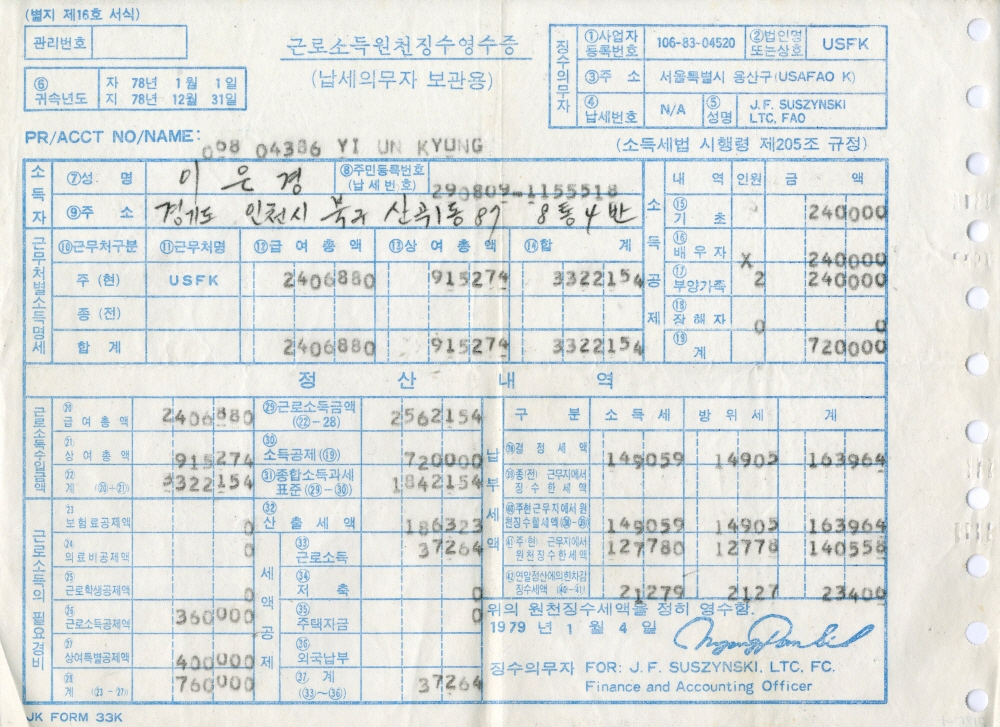 (별지 제16호 서식)
관리번호
근로소득원천징수영수증
(납세의무자 보관용)
⑥ 귀속년도
자 78년 1월 1일
지 78년 12월 31일
징수의무자
①사업자등록번호 106-83-04520 ②법인명또는상호 USFK
③주 소 서울특별시 용산구(USAFAO K)
④납세번호 N/A ⑤성명 J.F. SUSZYNSKI LTC, FAO
PR/ACCT NO/NAME: 068 04386 YI UN KYUNG
(소득세법 시행령 제205조 규정)
소득자
⑦성 명 이은경 ⑧주민등록번호 (납세번호) 290809-1155518
⑨주 소 경기도 인천시 북구 산곡1동 87 8통4반
근무처별소득명세
⑩근무처구분 ⑪근무처명 ⑫급여총액 ⑬상여총액 ⑭합 계
주 (현) USFK 2406880 915274 3322154
종 (전)
합 계 2406880 915274 3322154
소득공제
내 역 인원 금 액
⑮기 초 240000
⑯배우자 X 240000
⑰부양가족 2 240000
⑱장해자 0 0
⑲계 720000
정 산 내 역
근로소득수입금액
⑳급여총액 2406880
21 상여총액 915274
22 계 (⑳+21) 3322154
근로소득의 필요경비
23 보험료공제액 0
24 의료비공제액 0
25 근로학생공제액 0
26 근로소득공제액 360000
27 상여특별공제액 400000
28 계 (23-27) 760000
㉙근로소득금액 (22-28) 2562154
㉚소득공제(⑲) 720000
㉛종합소득과세표준(㉙-㉚) 1842154
㉜산출세액 186323
세액공제
㉝근로소득 37264
㉞저 축 0
㉟주택자금 0
㊱외국납부
㊲계 (33~36) 37264
납부세액
구 분 소득세 방위세 계
㊳결정세액 149059 14905 163964
㊴종(전) 근무지에서 징수한세액
㊵주현근무지에서원천징수할세액(㊳-㊴) 149059 14905 163964
㊶주·현 근무지에서 원천징수한세액 127780 12778 140558
㊷연말정산에의한차감징수세액 (40-41) 21279 2127 23400
위의 원천징수세액을 정히 영수함.
1979 년 1 월 4 일
징수의무자 FOR: J.F. SUSZYNSKI, LTC, FC.
Finance and Accounting Officer
UK FORM 33K